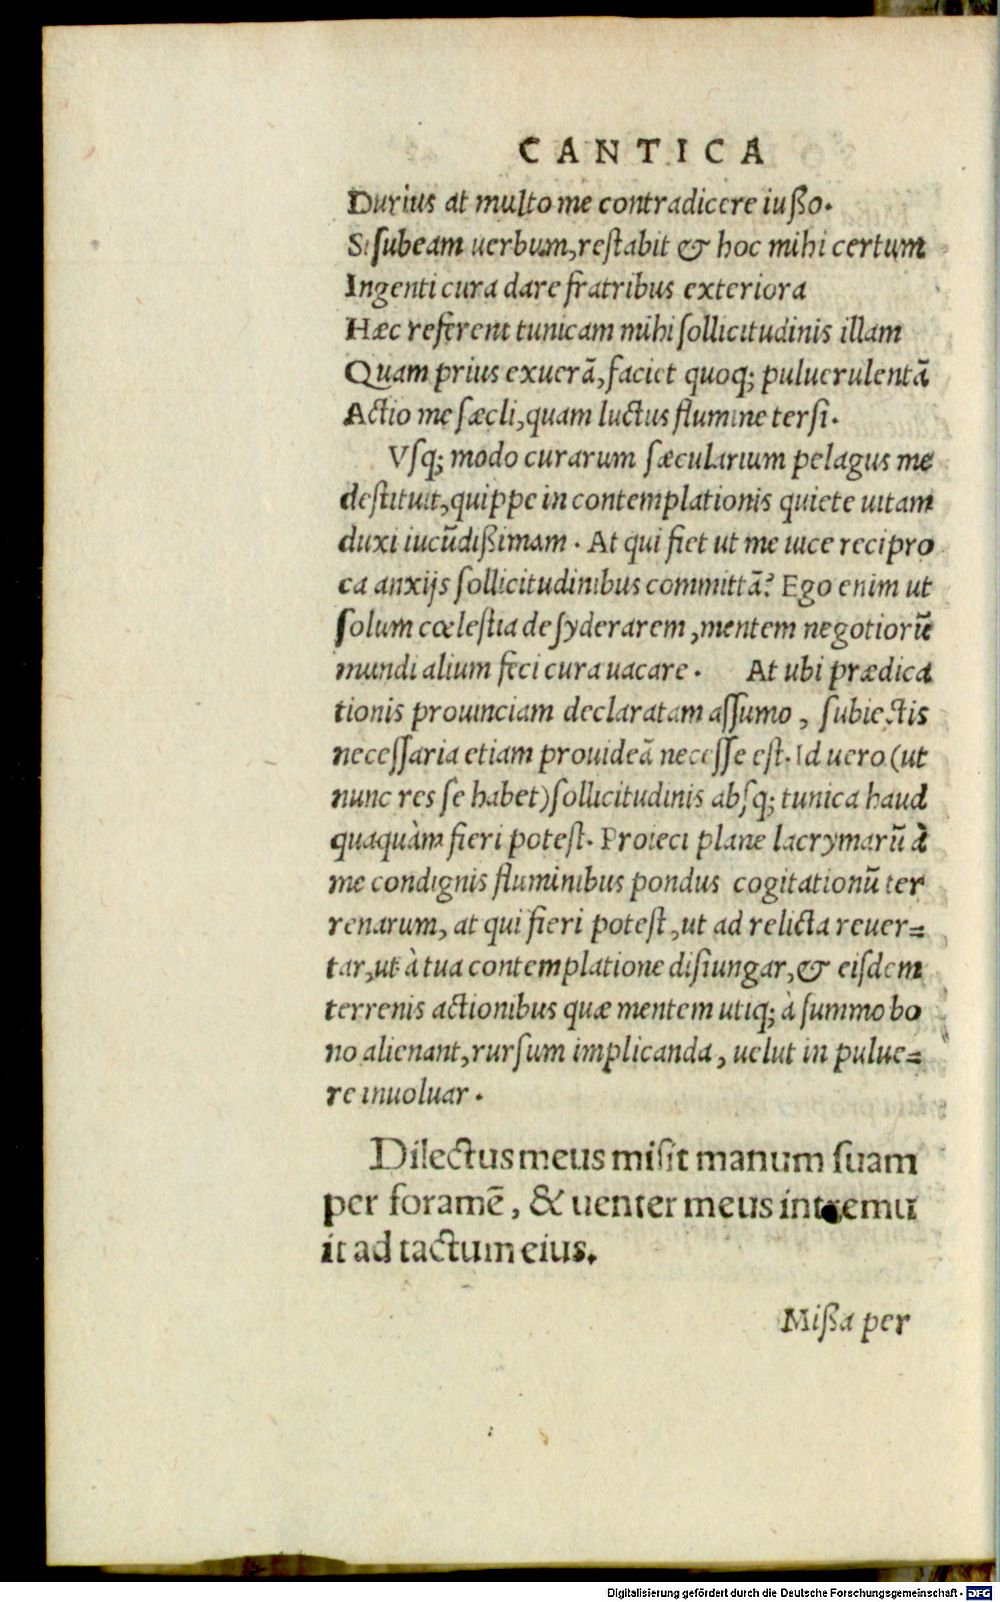 CANTICA
Durius at multo me contradicere iußo.
Si subeam uerbum, restabit & hoc mihi certum
Ingenti cura dare fratribus exteriora
Hæc referent tunicam mihi sollicitudinis illam
Quam prius exuerā, faciet quoq; puluerulentā
Actio me sæcli, quam luctus flumine tersi.
Vsq; modo curarum sæcularium pelagus me
destituit, quippe in contemplationis quiete uitam
duxi iucūdißimam. At qui fiet ut me uice recipro
ca anxijs sollicitudinibus committā? Ego enim ut
solum cœlestia desyderarem, mentem negotiorū
mundi alium feci cura uacare. At ubi prædica
tionis prouinciam declaratam assumo, subiectis
necessaria etiam prouideā necesse est. Id uero (ut
nunc res se habet) sollicitudinis absq; tunica haud
quaquàm fieri potest. Proieci plane lacrymarū à
me condignis fluminibus pondus cogitationū ter
renarum, at qui fieri potest, ut ad relicta reuer=
tar, ut à tua contemplatione disiungar, & eisdem
terrenis actionibus quæ mentem utiq; à summo bo
no alienant, rursum implicanda, uelut in pulue=
re inuoluar.
Dilectus meus misit manum suam
per foramē, & uenter meus intremu
it ad tactum eius.
Mißa per
Digitalisierung gefördert durch die Deutsche Forschungsgemeinschaft - DFG